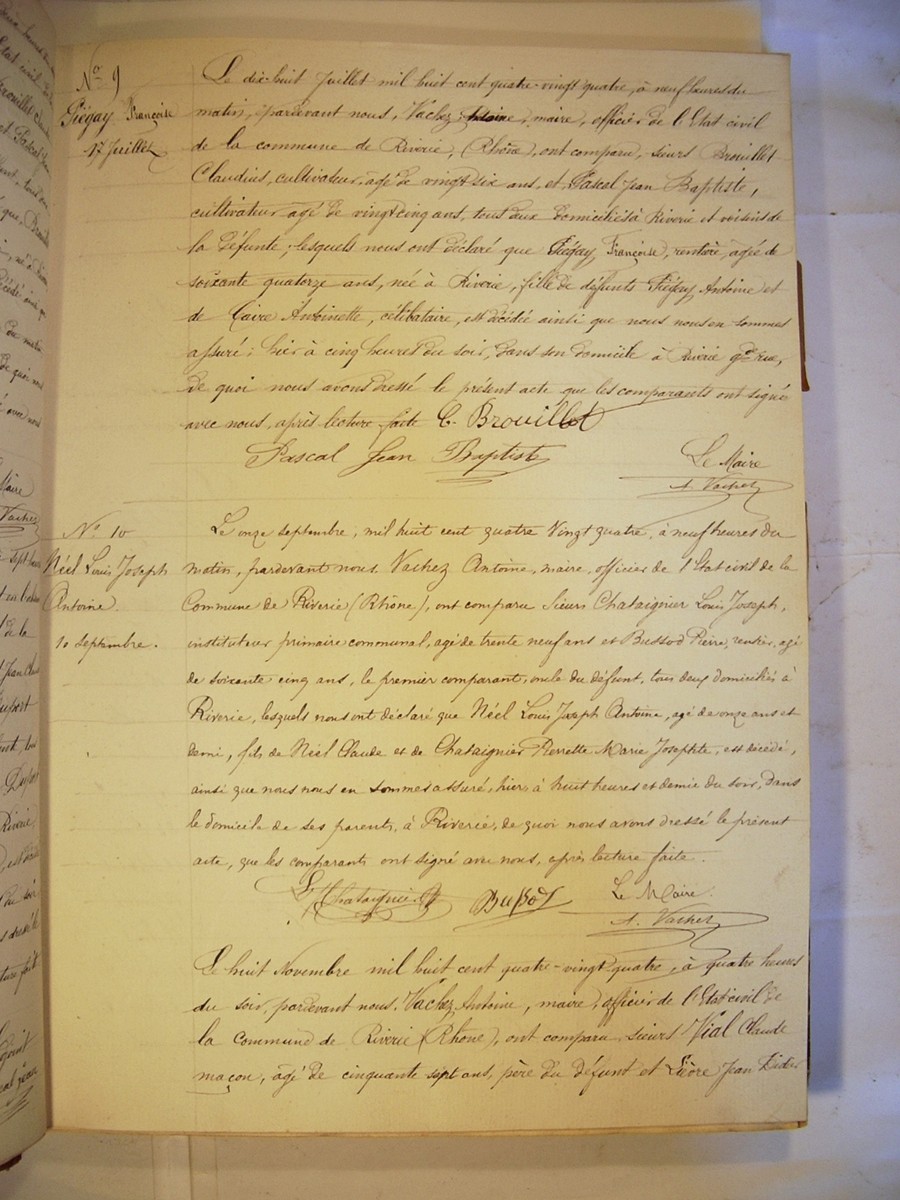 No 9
Piégay Françoise
17 Juillet
Le dix-huit Juillet mil huit cent quatre-vingt quatre, à neuf heures du
matin, pardevant nous, Vachez Antoine, maire, officier de l'Etat civil
de la commune de Riverie, (Rhône), ont comparu, sieurs Brouillet
Claudius, cultivateur, agé de vingt six ans, et Pascal Jean Baptiste,
cultivateur agé de vingt cinq ans, tous deux domiciliés à Riverie et voisins de
la défunte, lesquels nous ont déclaré que Piégay Françoise, rentière, agée de
soixante quatorze ans, née à Riverie, fille de défunts Piégay Antoine et
de Caire Antoinette, célibataire, est décédée ainsi que nous nous en sommes
assuré, hier à cinq heures du soir, dans son domicile à Riverie gde rue,
de quoi nous avons dressé le présent acte que les comparants ont signé
avec nous, après lecture faite C. Brouillet
Pascal Jean Baptiste
Le Maire
A. Vachez
No 10
Néel Louis Joseph
Antoine.
10 septembre.
Le onze septembre, mil huit cent quatre vingt quatre, à neuf heures du
matin, pardevant nous, Vachez Antoine, maire, officier de l'Etat civil de la
Commune de Riverie (Rhône), ont comparu Sieurs Chataignier Louis Joseph,
instituteur primaire communal, agé de trente neuf ans et Bussod Pierre, rentier, agé
de soixante cinq ans, le premier comparant, oncle du défunt, tous deux domiciliés à
Riverie, lesquels nous ont déclaré que Néel Louis Joseph Antoine, agé de onze ans et
demi, fils de Néel Claude et de Chataignier Pierrette Marie Josephte, est décédé,
ainsi que nous nous en sommes assuré, hier, à huit heures et demie du soir, dans
le domicile de ses parents, à Riverie, de quoi nous avons dressé le présent
acte, que les comparants ont signé avec nous, après lecture faite.
L Chataignier
Bussod
Le Maire
A. Vachez
Le huit Novembre mil huit cent quatre-vingt quatre, à quatre heures
du soir, pardevant nous, Vachez Antoine, maire, officier de l'Etat civil de
la commune de Riverie (Rhône), ont comparu, sieurs Vial Claude
maçon, agé de cinquante sept ans, père du défunt et Jean Didier